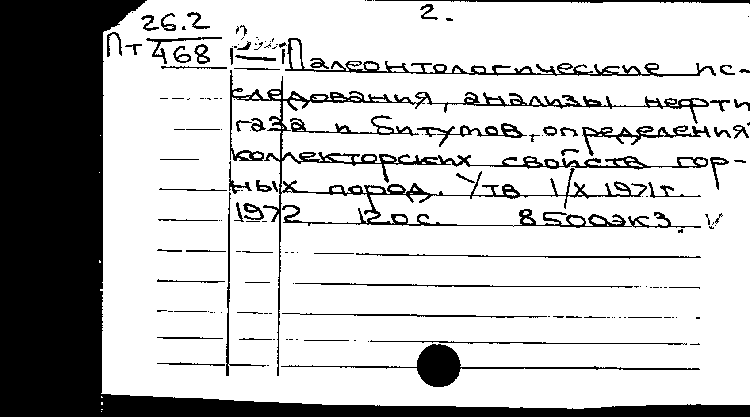 2.
26.2
Пт 468
Палеонтологические ис-
следования, анализы нефти
газа и битумов, определения
коллекторских свойств гор-
ных пород. Утв 1/X 1971г.
1972 120 с. 8500экз. V